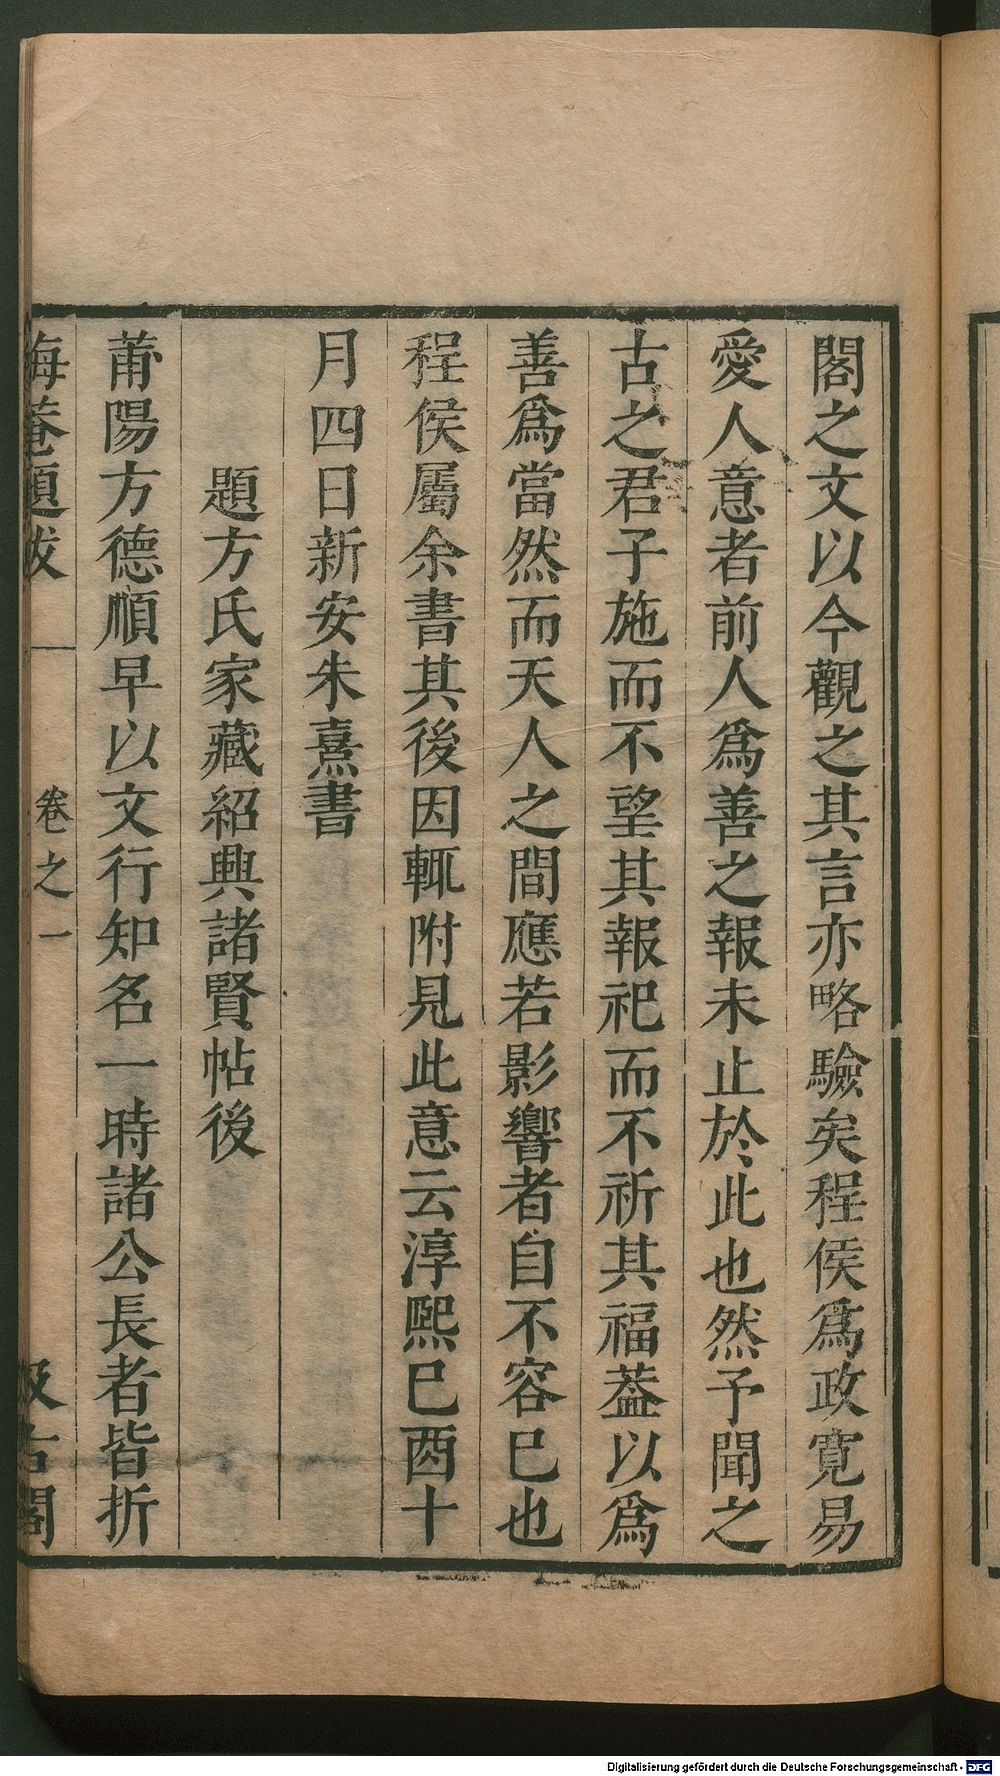 閣之文以今觀之其言亦略驗矣程侯爲政寛易
愛人意者前人爲善之報未止於此也然予聞之
古之君子施而不望其報祀而不祈其福葢以爲
善爲當然而天人之間應若影響者自不容已也
程侯屬余書其後因輒附見此意云淳熙已酉十
月四日新安朱熹書
題方氏家藏紹興諸賢帖後
莆陽方德順早以文行知名一時諸公長者皆折
晦菴題跋 卷之一 汲古閣
Digitalisierung gefördert durch die Deutsche Forschungsgemeinschaft - DFG